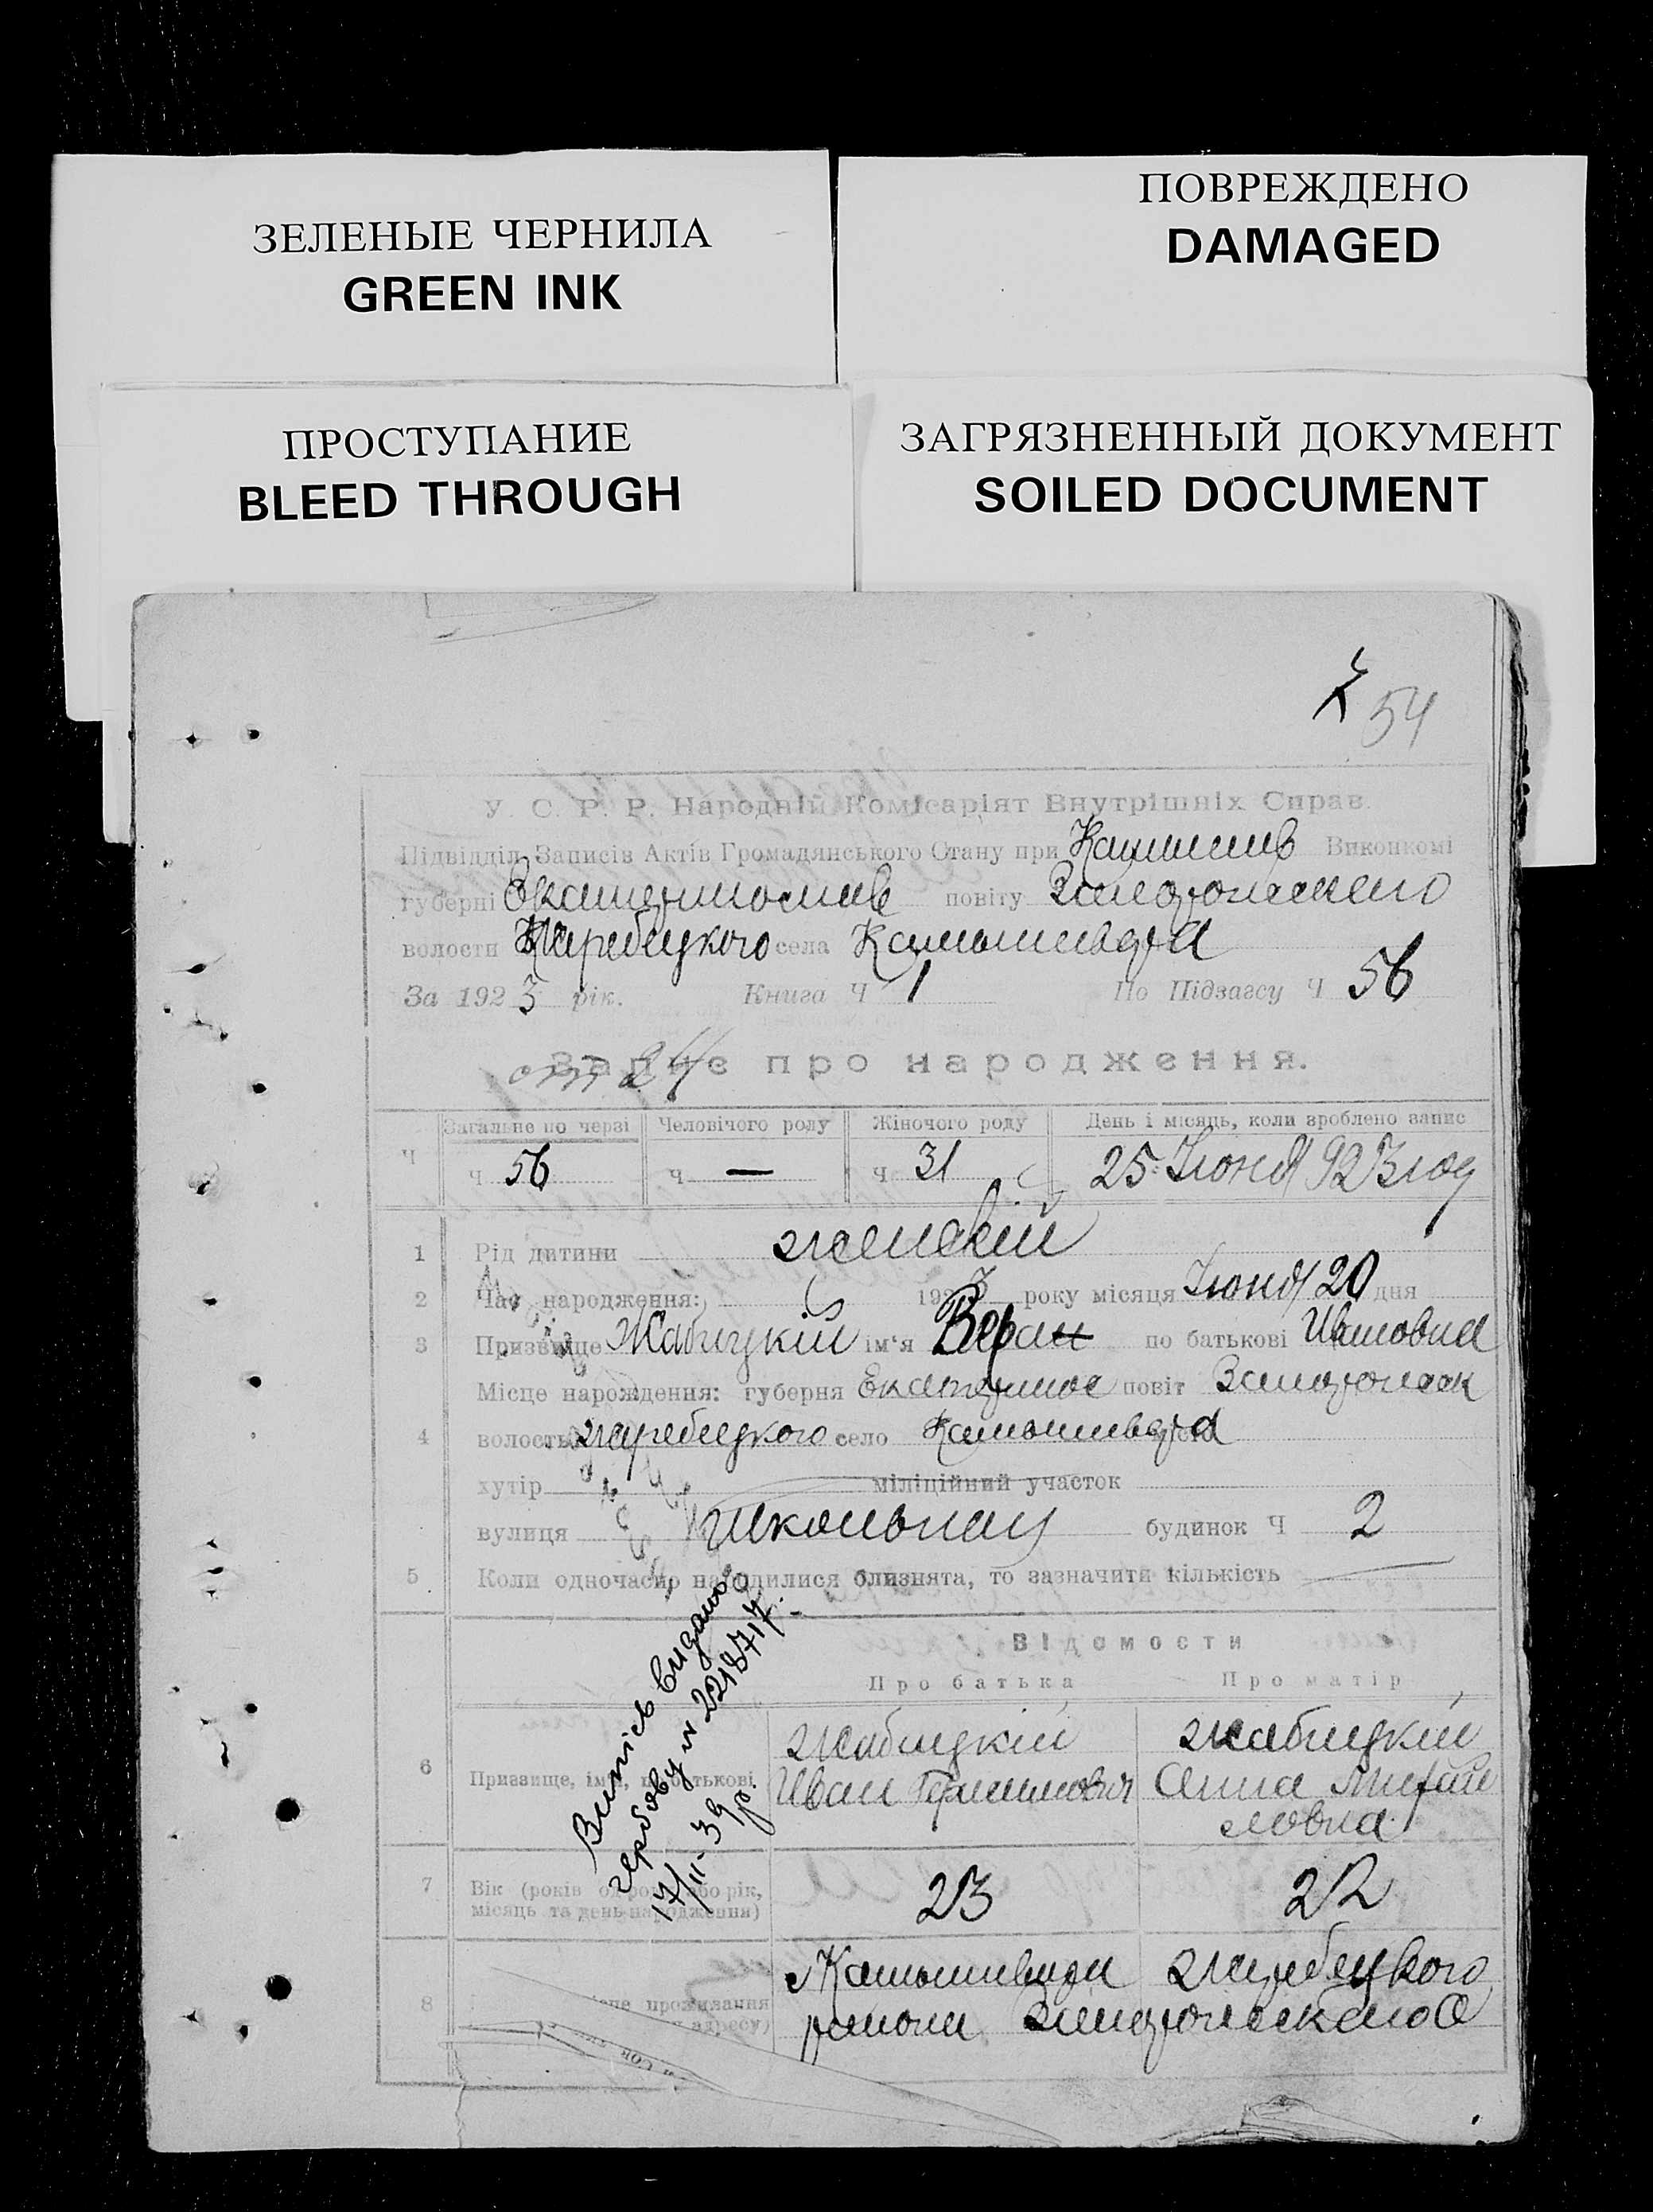 ЗЕЛЕНЫЕ ЧЕРНИЛА
GREEN INK
ПОВРЕЖДЕНО
DAMAGED
ПРОСТУПАНИЕ
BLEED THROUGH
ЗАГРЯЗНЕННЫЙ ДОКУМЕНТ
SOILED DOCUMENT
54
У. С. Р. Р. Народній Комісаріят Внутрішніх Справ.
Підвідділ Записів Актів Громадянського Стану при Виконкомі
губерні повіту Запорожскаго
волости Жеребецкого села Камышеваха
За 1923 рік. Книга Ч 1 По Підзагсу Ч 56
Запис про народження.
Ч Загальне по черзі Человічого роду Жіночого роду День і місяць, коли зроблено запис
ч 56 ч — ч 31 25 Июня 923 год
1 Рід дитини женский
2 Час народження: 1923 року місяця Июня 20 дня
3 Призвище Жабицкій ім'я Вера по батькові Ивановна
Місце народження: губерня Екатеринос повіт Запорожск
4 волость Жеребецкого село Камышеваха
хутір міліційний участок
вулиця Школьная будинок Ч 2
5 Коли одночасно народилися близнята, то зазначити кількість
Відомости
Про батька Про матір
6 Призвище, імя, по батькові
Жабицкій Жабицкій
Иван Анна Михай
ловна
7 Вік (років від роду або рік, місяць та день народження) 23 22
8 проживання адресу)
Камышеваха Жеребецкого
района Запорожскаго О
Витпісь видано
гербову № 221871
17/II-39 р.